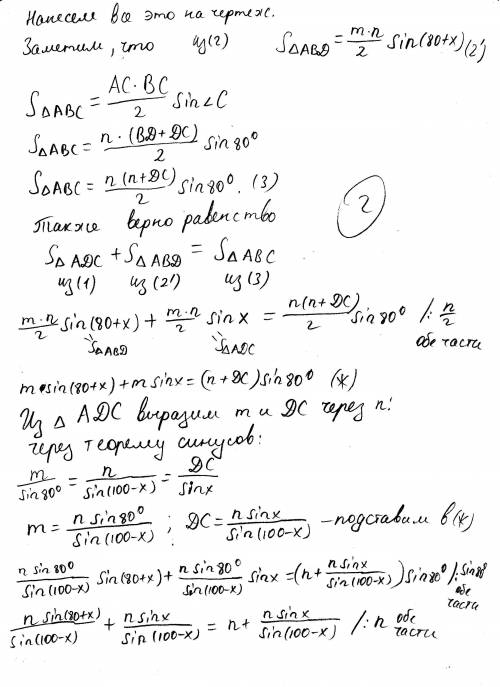 Нанесем все это на чертеж.
Заметим, что из(2) S△ABD = m·n/2 sin(80+x) (2')
S△ABC = AC·BC/2 sin∠C
S△ABC = n·(BD+DC)/2 sin80°
S△ABC = n(n+DC)/2 sin80°. (3)
Также верно равенство
2
S△ADC + S△ABD = S△ABC
из(1) из(2') из(3)
m·n/2 sin(80+x) + m·n/2 sin x = n(n+DC)/2 sin80° /: n/2
S△ABD S△ADC обе части
m·sin(80+x)+m sinx=(n+DC)sin80° (*)
Из △ ADC выразим m и DC через n:
через теорему синусов:
m/sin80° = n/sin(100-x) = DC/sinx
m = n sin80°/sin(100-x) ; DC = n sinx/sin(100-x) – подставим в (*)
n sin80°/sin(100-x) sin(80+x) + n sin80°/sin(100-x) sinx = (n + n sinx/sin(100-x)) sin80° /: sin80 обе части
n sin(80+x)/sin(100-x) + n sinx/sin(100-x) = n + n sinx/sin(100-x) /: n обе части